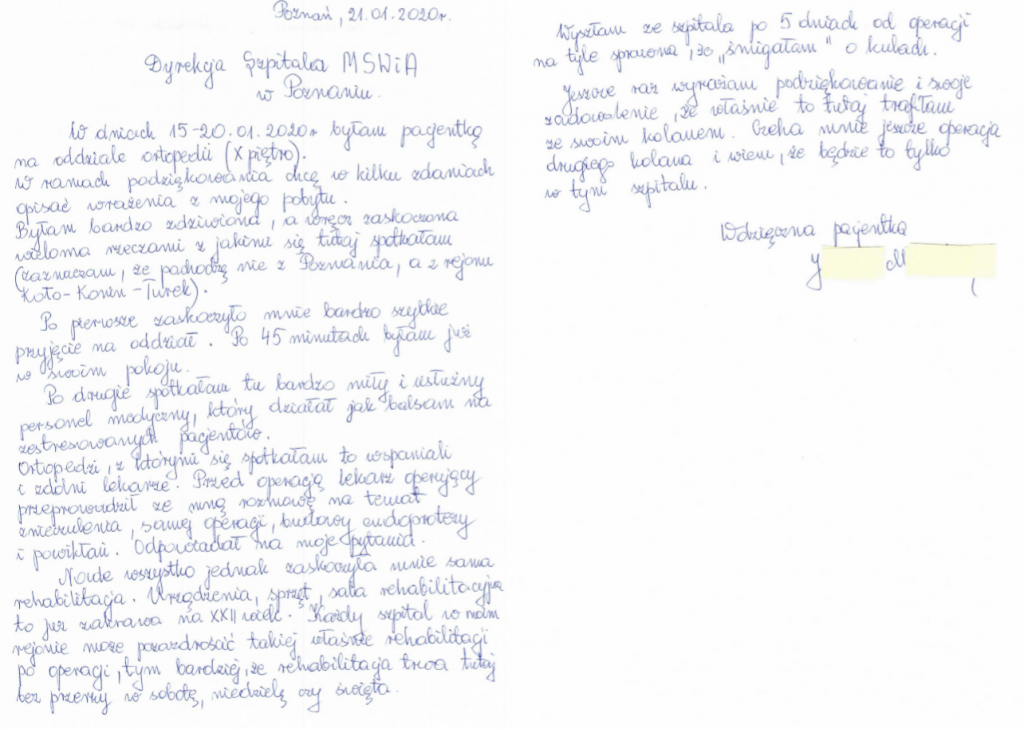 Poznań, 21.01.2020r.
Dyrekcja Szpitala MSWiA
w Poznaniu.
W dniach 15-20.01.2020r byłam pacjentką
na oddziale ortopedii (X piętro).
W ramach podziękowania chcę w kilku zdaniach
opisać wrażenia z mojego pobytu.
Byłam bardzo zdziwiona, a wręcz zaskoczona
wieloma rzeczami z jakimi się tutaj spotkałam
(zaznaczam, że pochodzę nie z Poznania, a z rejonu
Koło-Konin-Turek).
Po pierwsze zaskoczyło mnie bardzo szybkie
przyjęcie na oddział. Po 45 minutach byłam już
w swoim pokoju.
Po drugie spotkałam tu bardzo miły i usłużny
personel medyczny, który działał jak balsam na
zestresowanych pacjentów.
Ortopedzi, z którymi się spotkałam to wspaniali
i zdolni lekarze. Przed operacją lekarz operujący
przeprowadził ze mną rozmowę na temat
znieczulenia, samej operacji, budowy endoprotezy
i powikłań. Odpowiadał na moje pytania.
Nade wszystko jednak zaskoczyła mnie sama
rehabilitacja. Urządzenia, sprzęt, sala rehabilitacyjna
to już zakrawa na XXII wiek. Każdy szpital w moim
rejonie może pozazdrościć takiej właśnie rehabilitacji
po operacji, tym bardziej, że rehabilitacja trwa tutaj
bez przerwy w sobotę, niedzielę czy święta.
Wyszłam ze szpitala po 5 dniach od operacji
na tyle sprawna, że „śmigałam" o kulach.
Jeszcze raz wyrażam podziękowanie i swoje
zadowolenie, że właśnie to tutaj trafiłam
ze swoim kolanem. Czeka mnie jeszcze operacja
drugiego kolana i wiem, że będzie to tylko
w tym szpitalu.
Wdzięczna pacjentka
J M